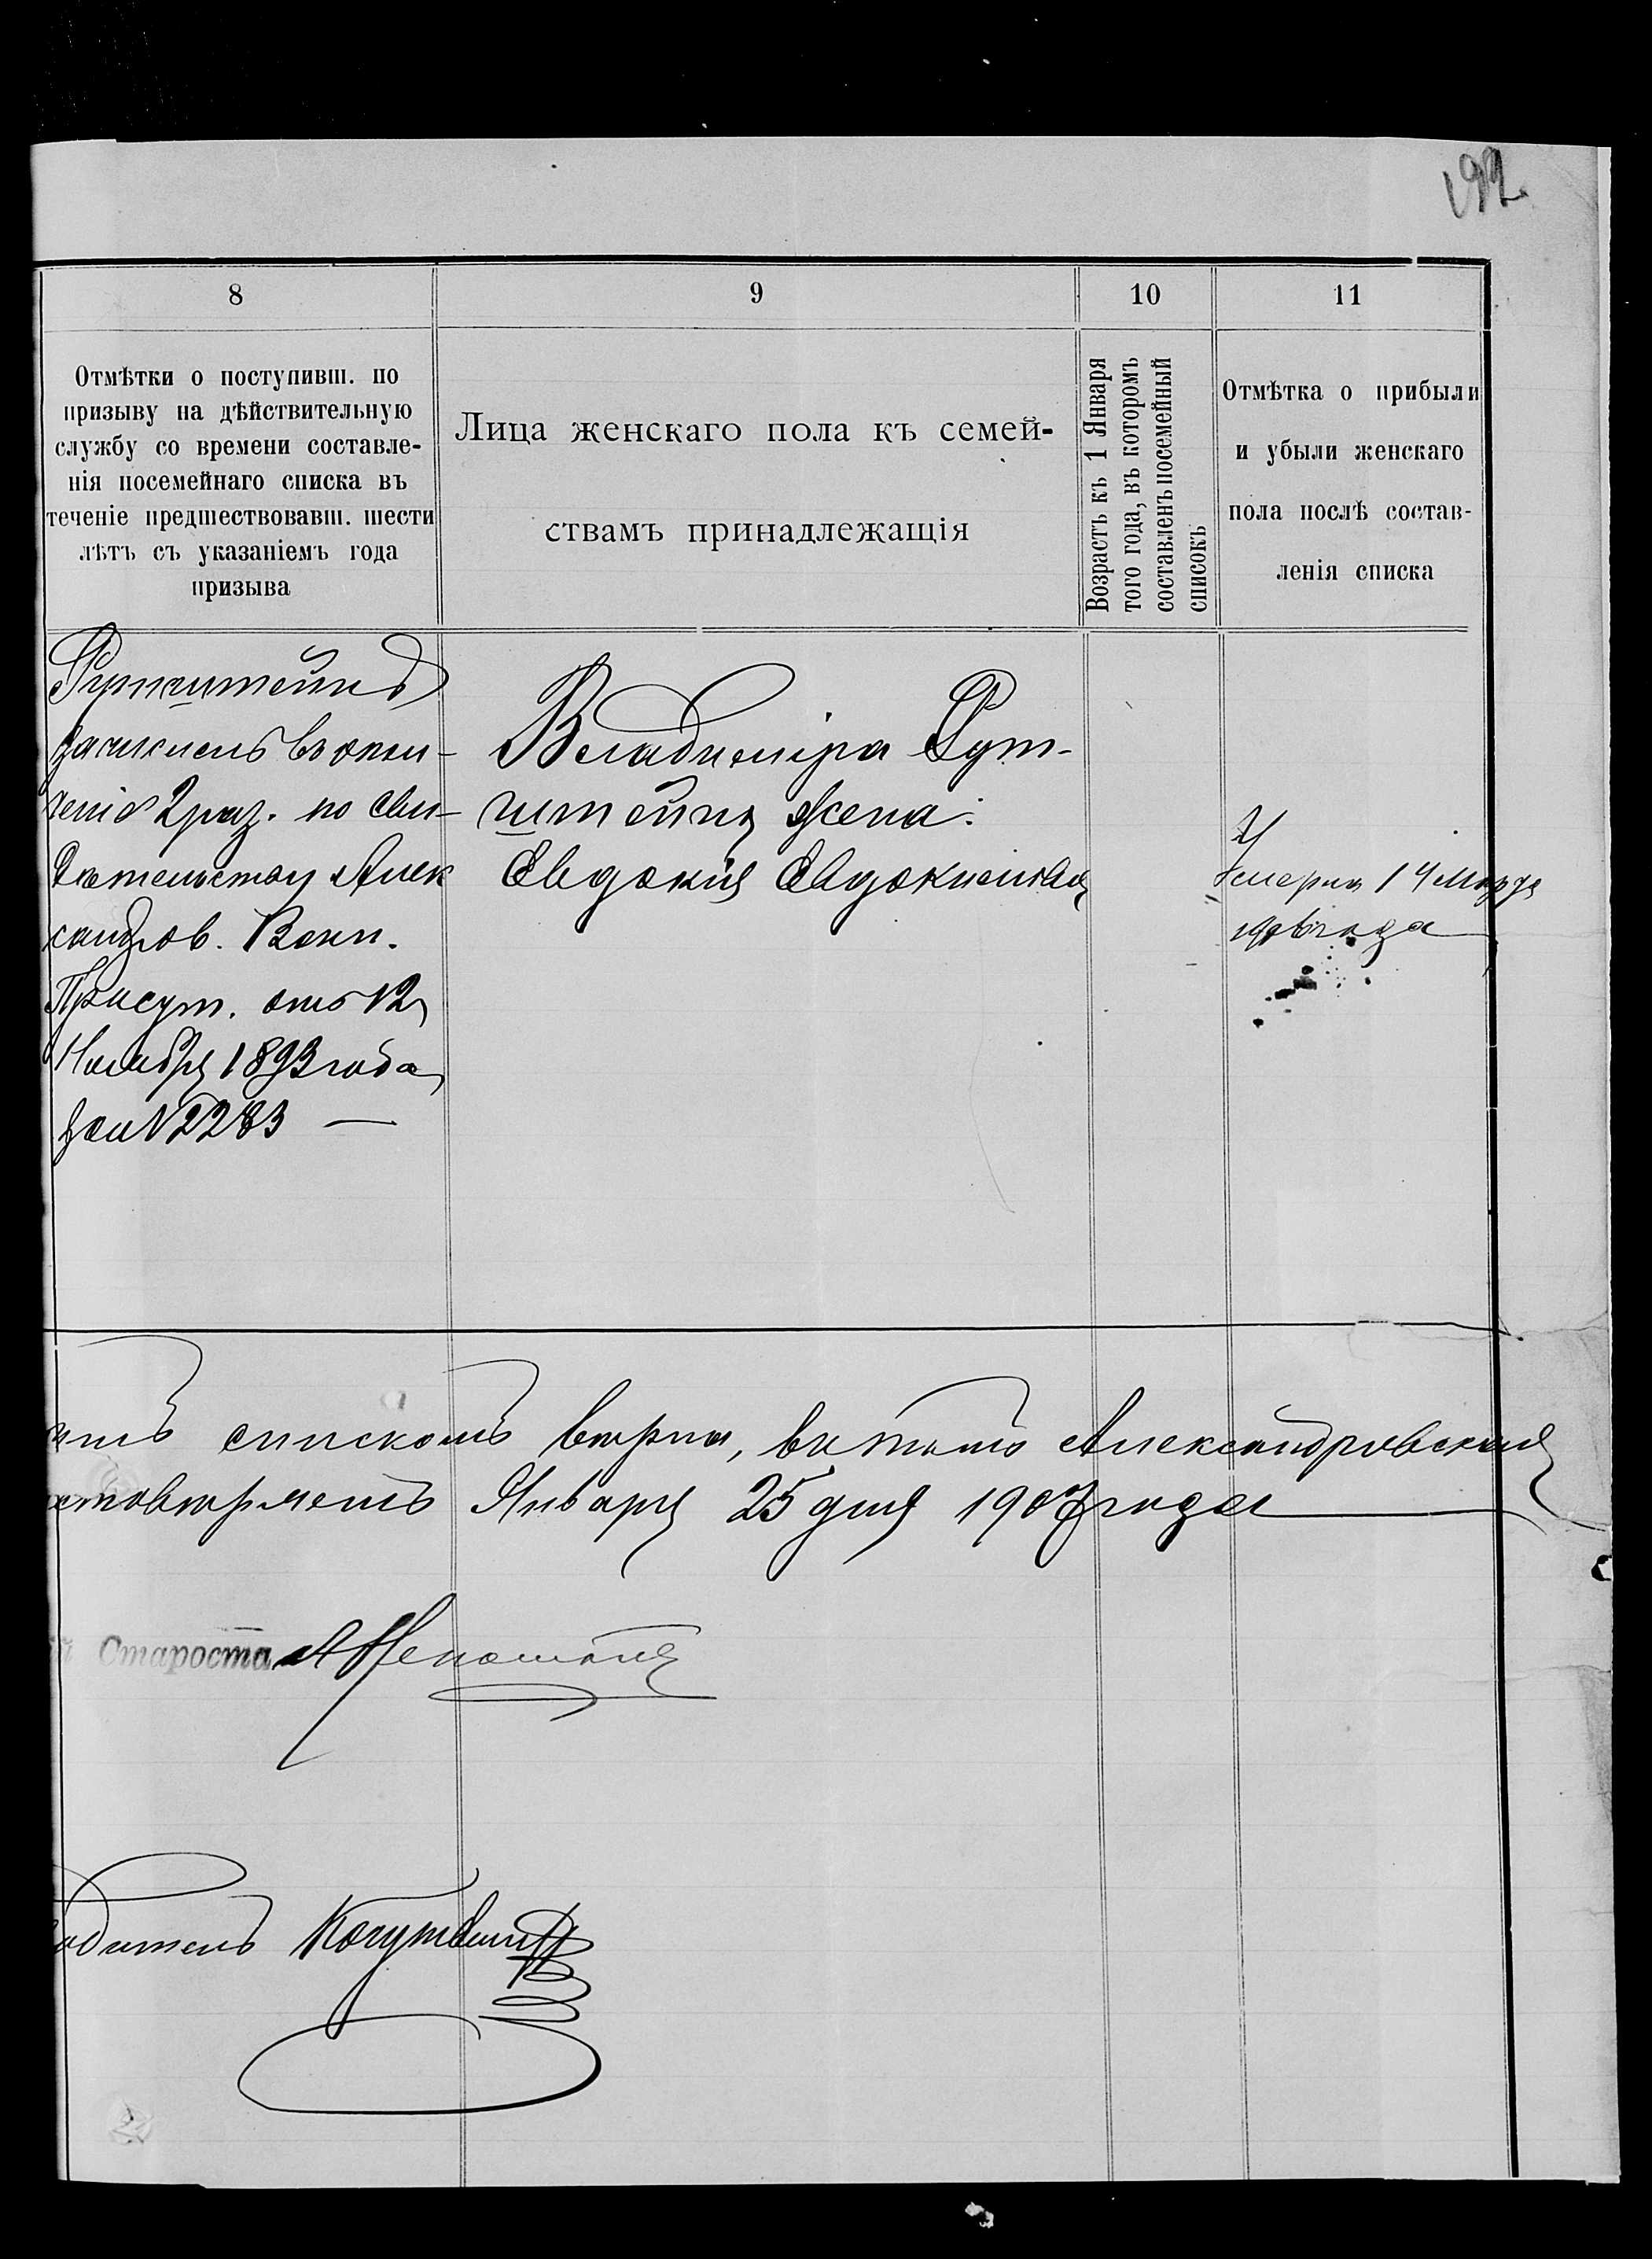 192
8
9
10
11
Отмѣтки о поступивш. по
призыву на дѣйствительную
службу со времени составле-
нія посемейнаго списка въ
теченіе предшествовавш. шести
лѣтъ съ указаніемъ года
призыва
Лица женскаго пола къ семей-
ствамъ принадлежащія
Возрастъ къ 1 Января
того года, въ которомъ
составленъ посемейный
списокъ
Отмѣтка о прибыли
и убыли женскаго
пола послѣ состав-
ленія списка
Рутштейнъ
зачисленъ въ опол-
ченіе 2 раз. по сви-
дѣтельству Алек
сандров. Воин.
Присут. отъ 12
Ноября 1893 года
за № 2283 —
Владиміра Рут-
штейна жена:
Евдокія Евдокимова
Умерла 14 Марта
1906 года
списком вѣрна, въ томъ Александровская
Января 25 дня 1907 года
й Староста
водитель